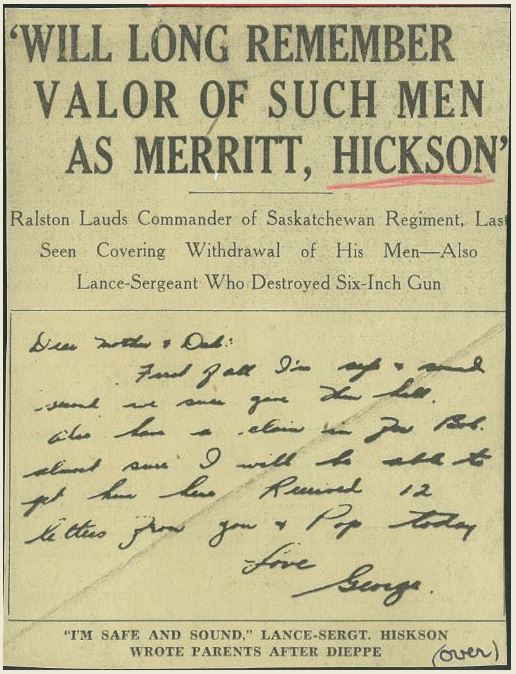 'WILL LONG REMEMBER
VALOR OF SUCH MEN
AS MERRITT, HICKSON'
Ralston Lauds Commander of Saskatchewan Regiment, Last
Seen Covering Withdrawal of His Men—Also
Lance-Sergeant Who Destroyed Six-Inch Gun
Dear Mother &
First of all I'm safe & sound
second we sure gave them hell.
Also have a claim in for Bob.
almost sure I will be able to
get him here Received 12
letters from you & Pop today
Love
George.
"I'M SAFE AND SOUND," LANCE-SERGT. HISKSON
WROTE PARENTS AFTER DIEPPE
(over)